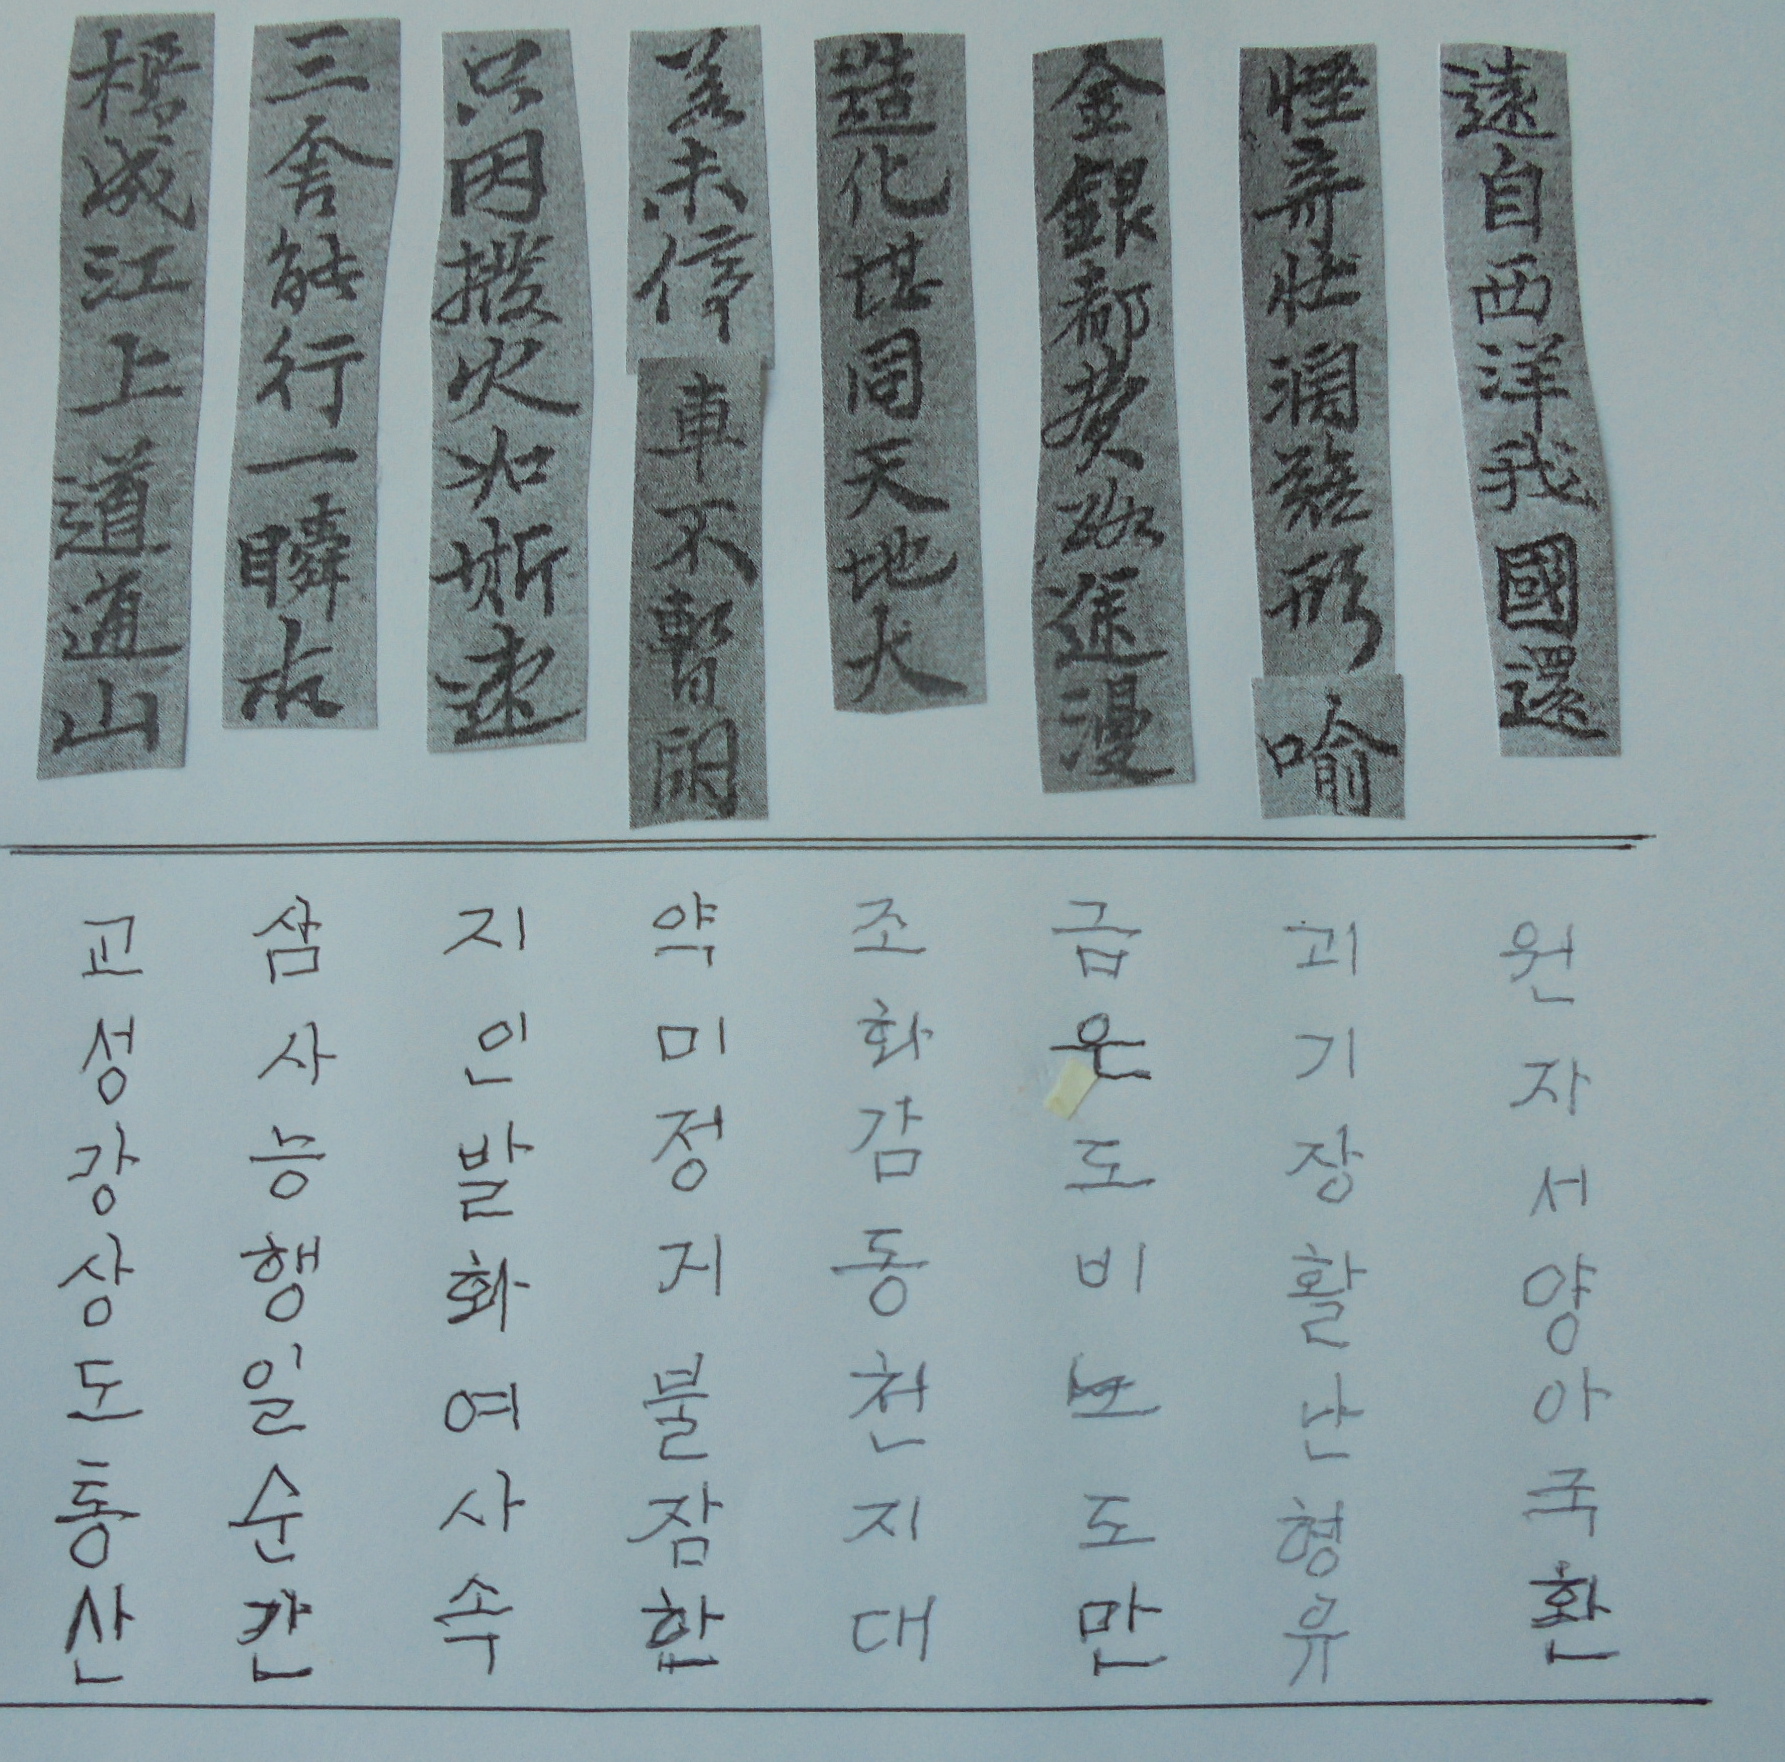 遠自西洋我國還
怪奇壯濶難形喻
金銀都費路途漫
造化堪同天地大
若未停車不暫閑
只因撥火如斯速
三舍能行一瞬
橋成江上道通山
원자서양아국환
괴기장활난형유
금은도비노도만
조화감동천지대
약미정지불잠한
지인발화여사속
삼사능행일순칸
교성강상도통산